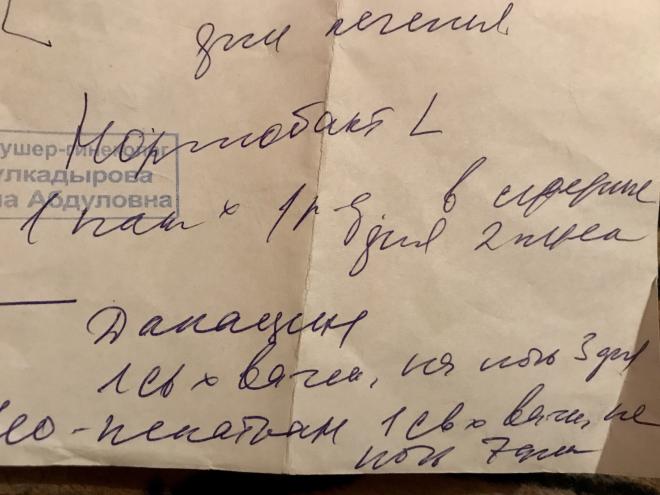 дни лечения
Нормобакт L
ушер-гинеколог
улкадырова
на Абдуловна
1 пак х 1 р д в середине
дня
Далацин
1 св х вагин, на ночь 3 дня
ео-пенотран 1 св х вагин, на
ночь 7 дн